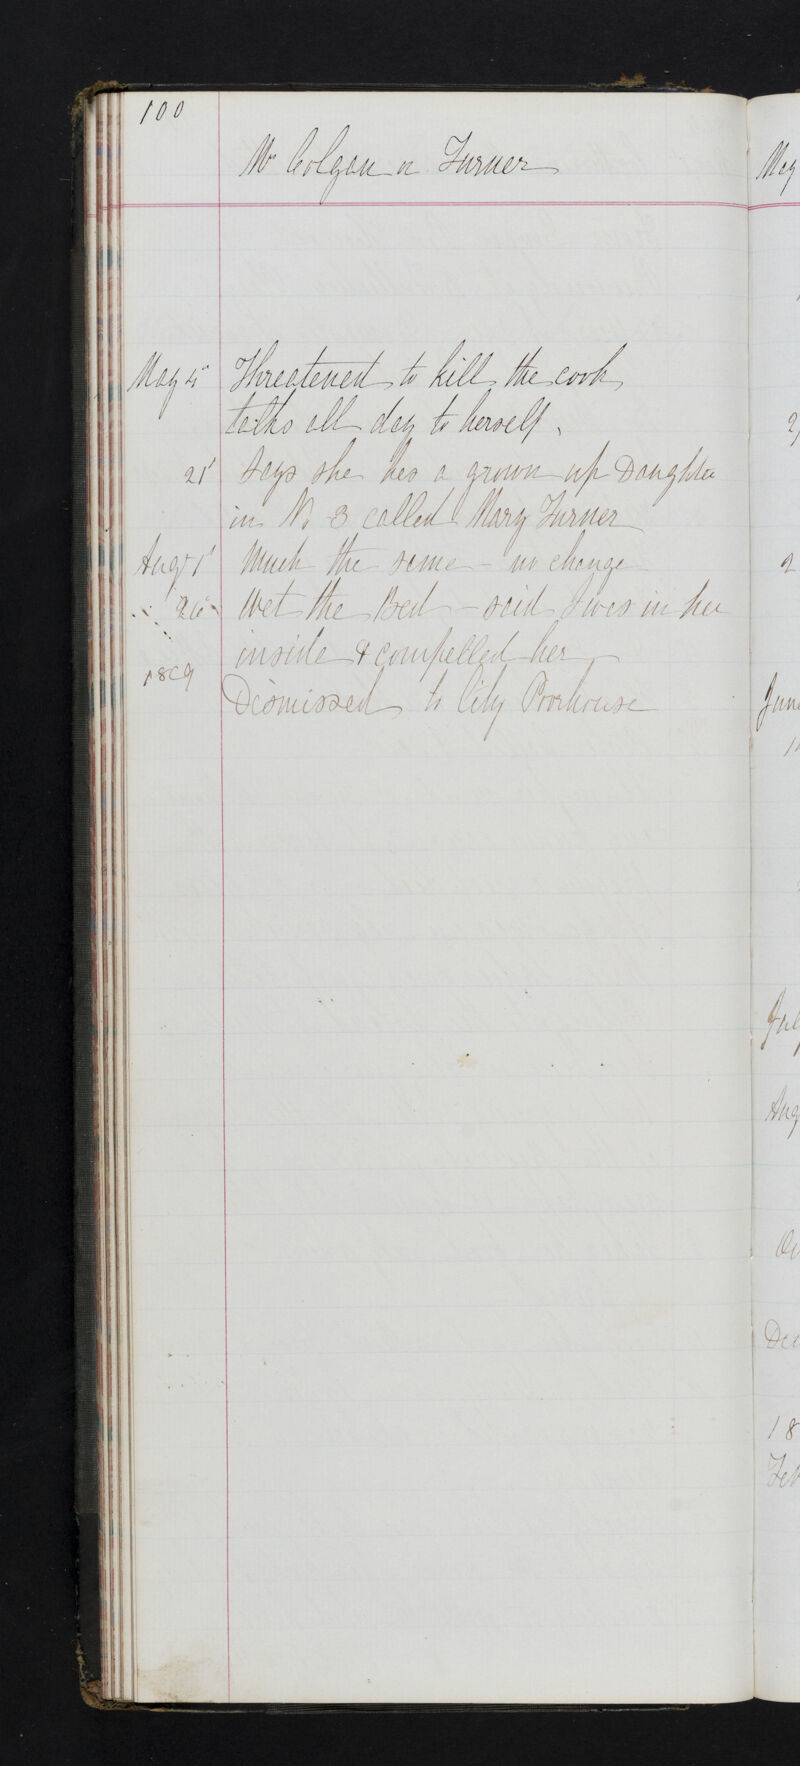 100
Mc Colgan or Turner
May 5 Threatened to kill the cook
talks all day to herself.
21 Says she has a grown up Daughter
in No 3 called Mary Turner
Augt 1 Much the same - no change
26 Wet the Bed - said was in her
inside & compelled her
1869
Dismissed to City Poorhouse
May
2
2
June
1
July
Aug
Dec
18
Feb